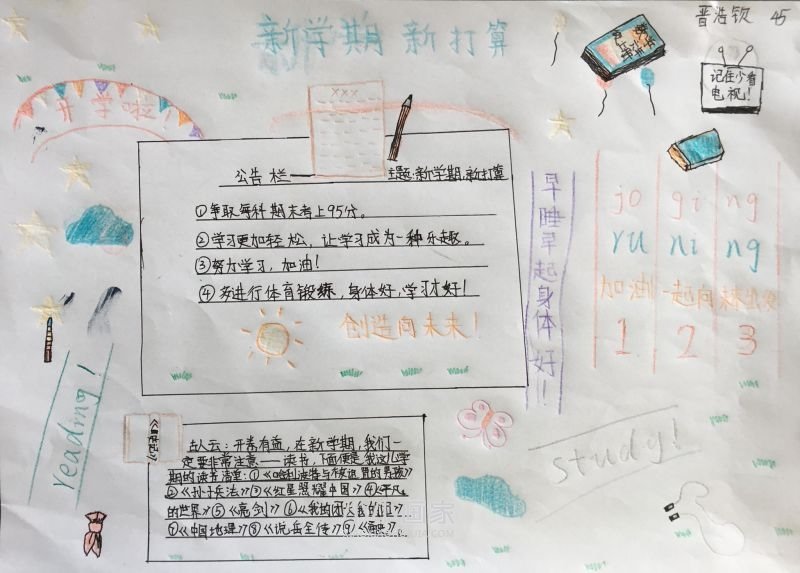 新学期 新打算
晋浩钦 45
开学啦!
记住少看
电视!
XXX
公告栏 主题:新学期,新打算
①争取每科期末考上95分。
②学习更加轻松,让学习成为一种乐趣。
③努力学习,加油!
④多进行体育锻炼,身体好,学习才好!
创造向未来!
早睡早起身体好!!
jo gi ng
ru ni ng
加油 一起向
1 2 3
reading!
study!
古人云:开卷有益,在新学期,我们一
定要非常注意——读书,下面便是我这几学
期的读书清单:①《哈利波特与被诅咒的男孩》
②《孙子兵法》③《红星照耀中国》④《平凡
的世界》⑤《亮剑》⑥《我的团长我的团》
⑦《中国地理》⑧《说岳全传》⑨